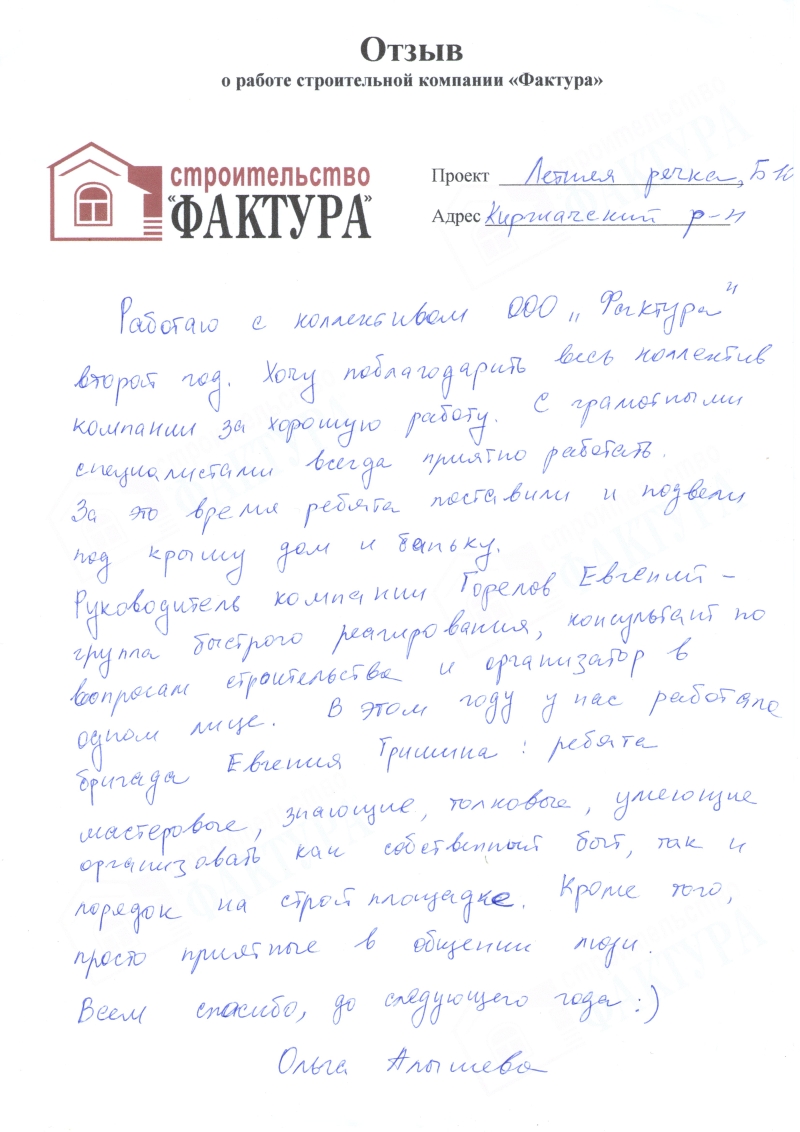 Отзыв
о работе строительной компании «Фактура»
строительство
"ФАКТУРА"
Проект Летняя речка, Б10
Адрес Киржачский р-н
Работаю с коллективом ООО „Фактура"
второй год. Хочу поблагодарить весь коллектив
компании за хорошую работу. С грамотными
специалистами всегда приятно работать.
За это время ребята поставили и подвели
под крышу дом и баньку.
Руководитель компании Горелов Евгений –
группа быстрого реагирования, консультант по
вопросам строительства и организатор в
одном лице. В этом году у нас работала
бригада Евгения Гришина: ребята
мастеровые, знающие, толковые, умеющие
организовать как собственный быт, так и
порядок на строй площадке. Кроме того,
просто приятные в общении люди.
Всем спасибо, до следующего года :)
Ольга